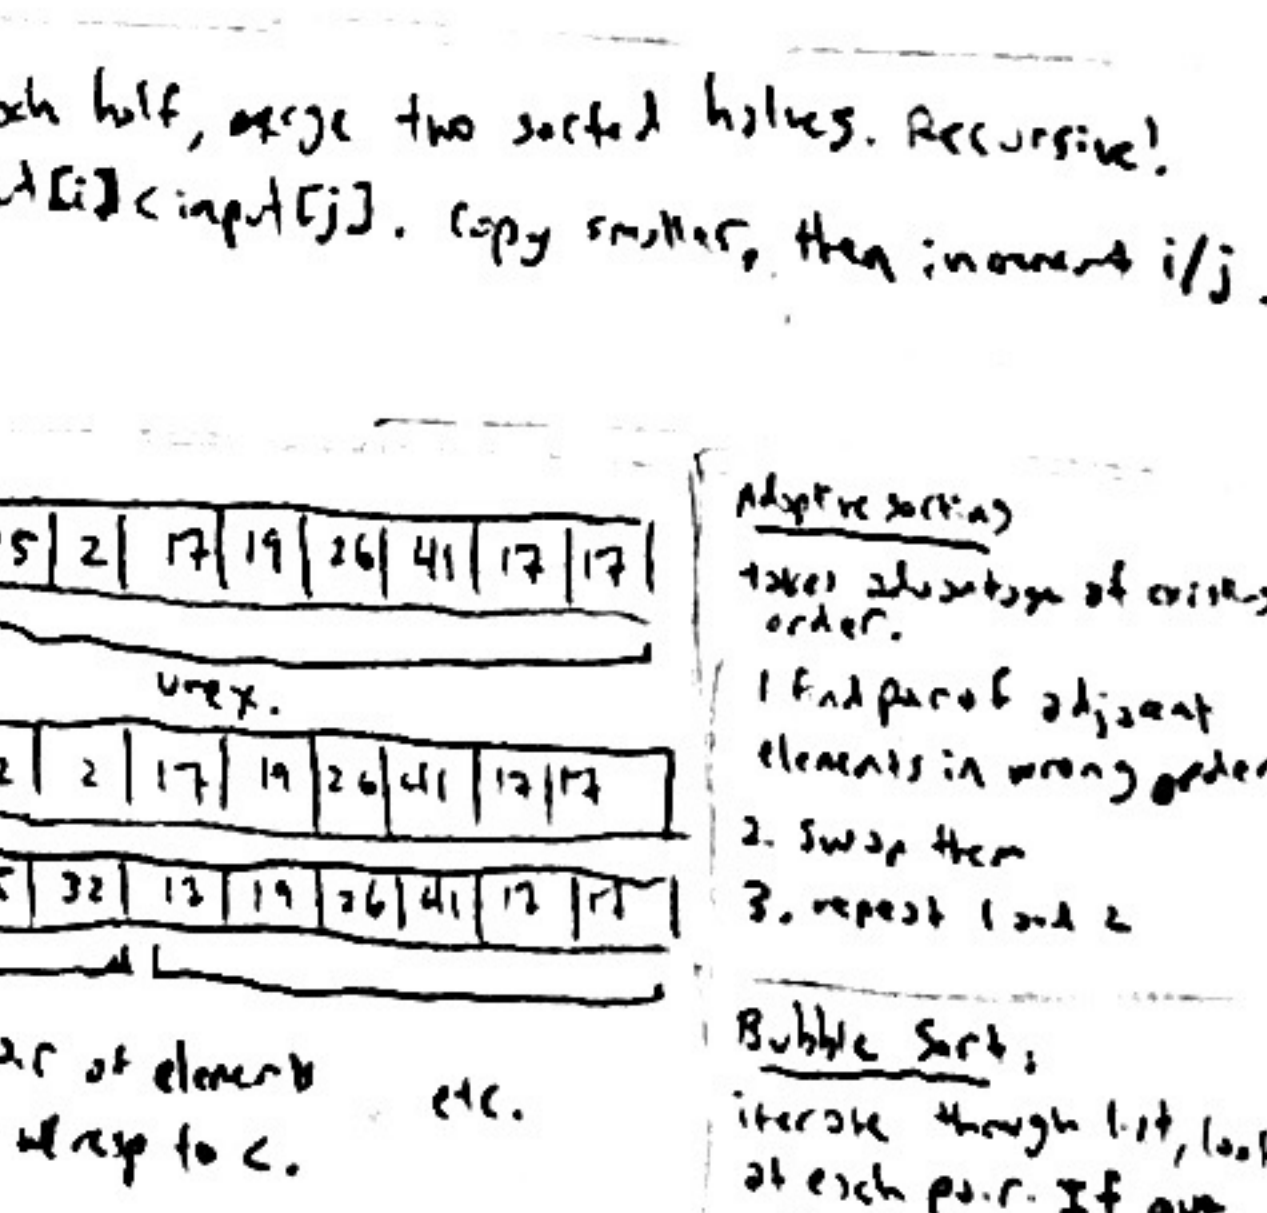 half, merge two sorted halves. Recursive!
[i] < input[j]. Copy smaller, then increment i/j.
5 | 2 | 17 | 19 | 26 | 41 | 17 | 17
unex.
2 | 2 | 17 | 19 | 26 | 41 | 17 | 17
32 | 13 | 19 | 26 | 41 | 17 | 17
of elements etc.
resp to <.
Adaptive sorting
takes advantage of existing
order.
1 find pair of adjacent
elements in wrong order
2. Swap them
3. repeat 1 and 2
Bubble Sort:
iterate through list, look
at each pair. If